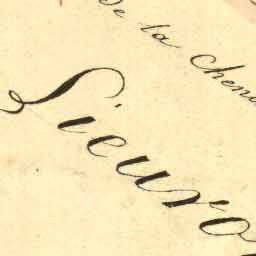 De la Chena
Sieuro